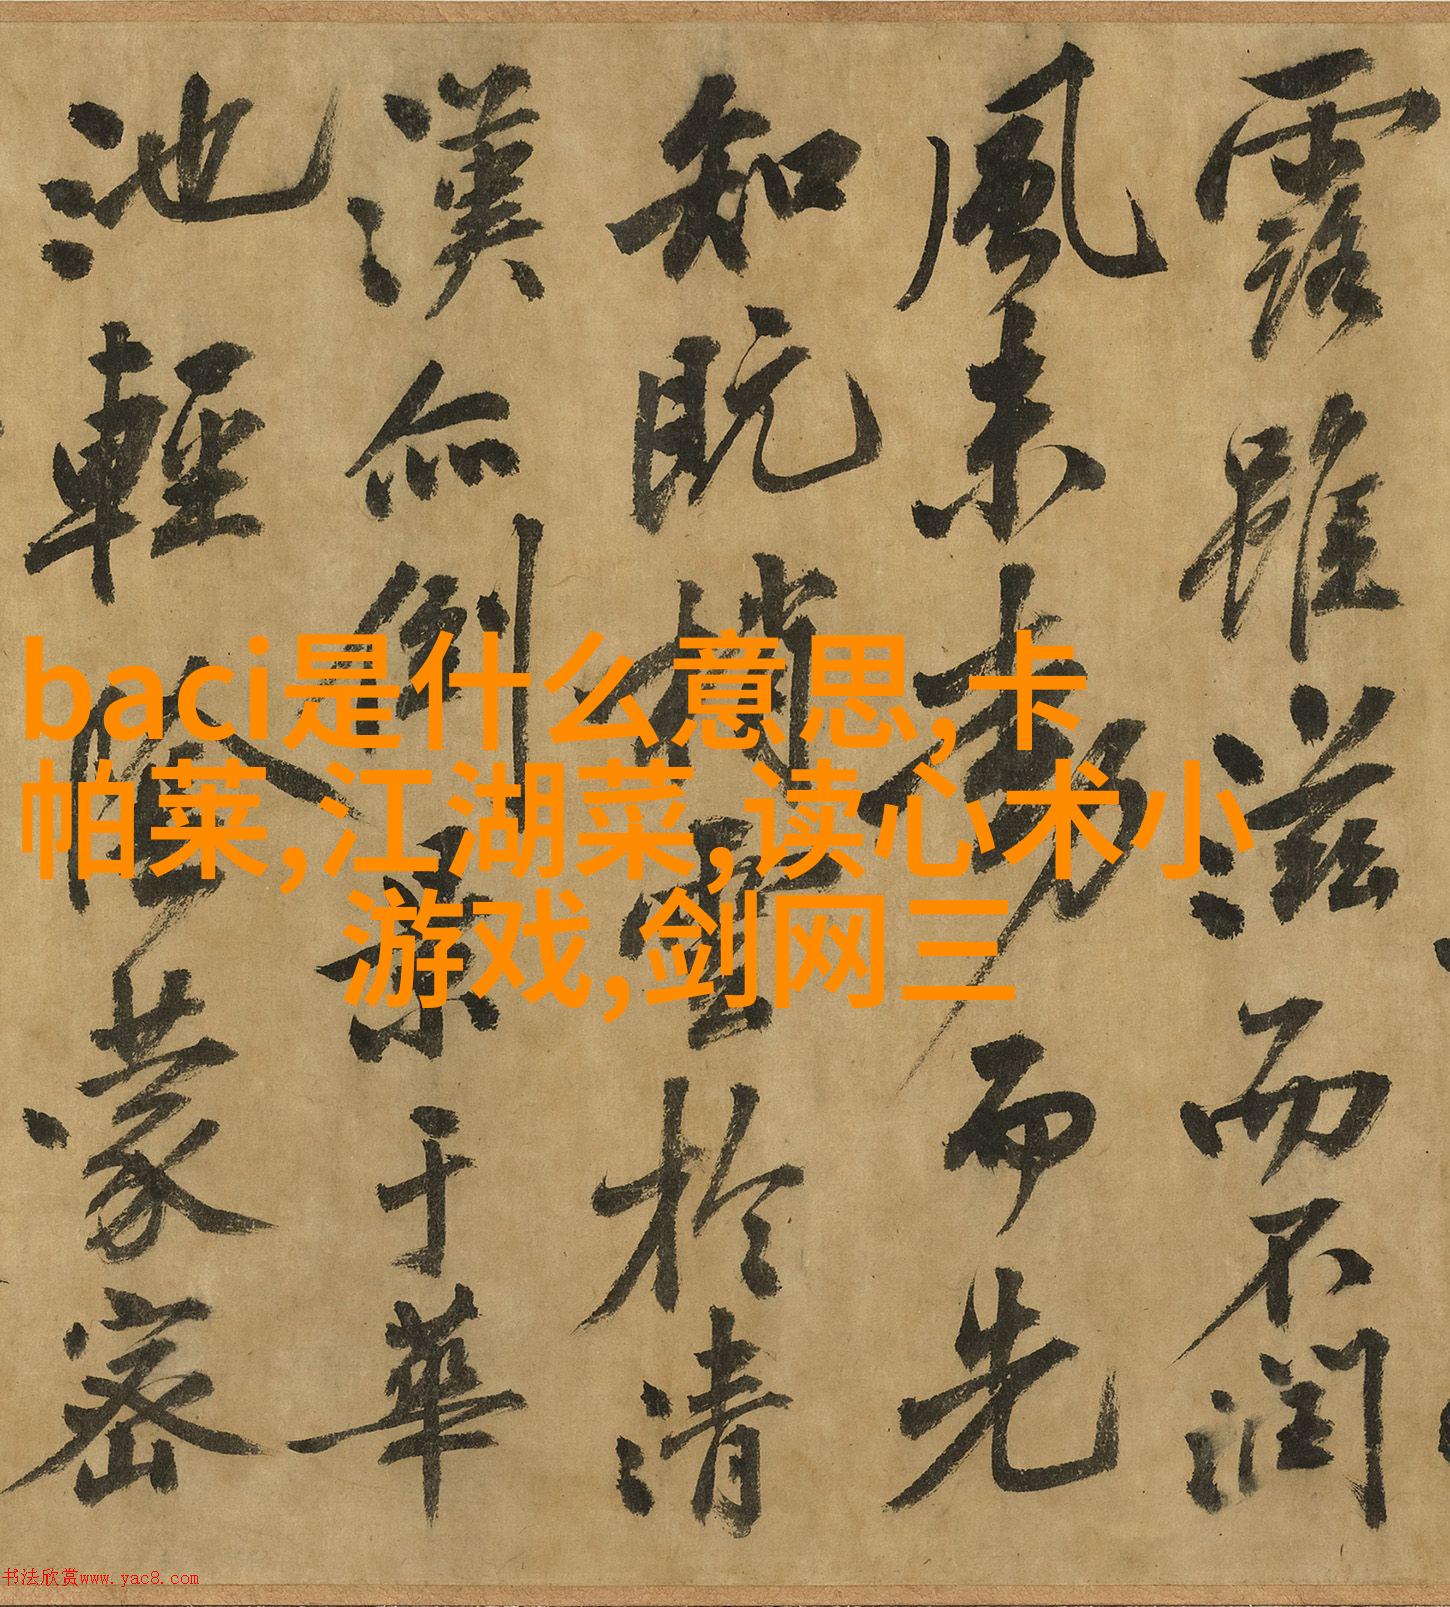 露雖滋而不潤
風未動而先
知既梢雲於清
漢亦倒景于華
池輕陰蒙密
baci是什么意思,卡
帕莱,江湖菜,读心术小
游戏,剑网三
书法欣赏www.yac8.com